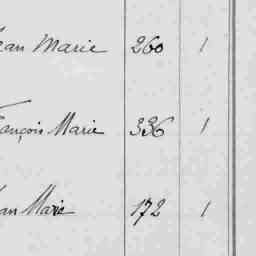 Jean Marie 260 1
François Marie 336 1
Jean Marie 172 1